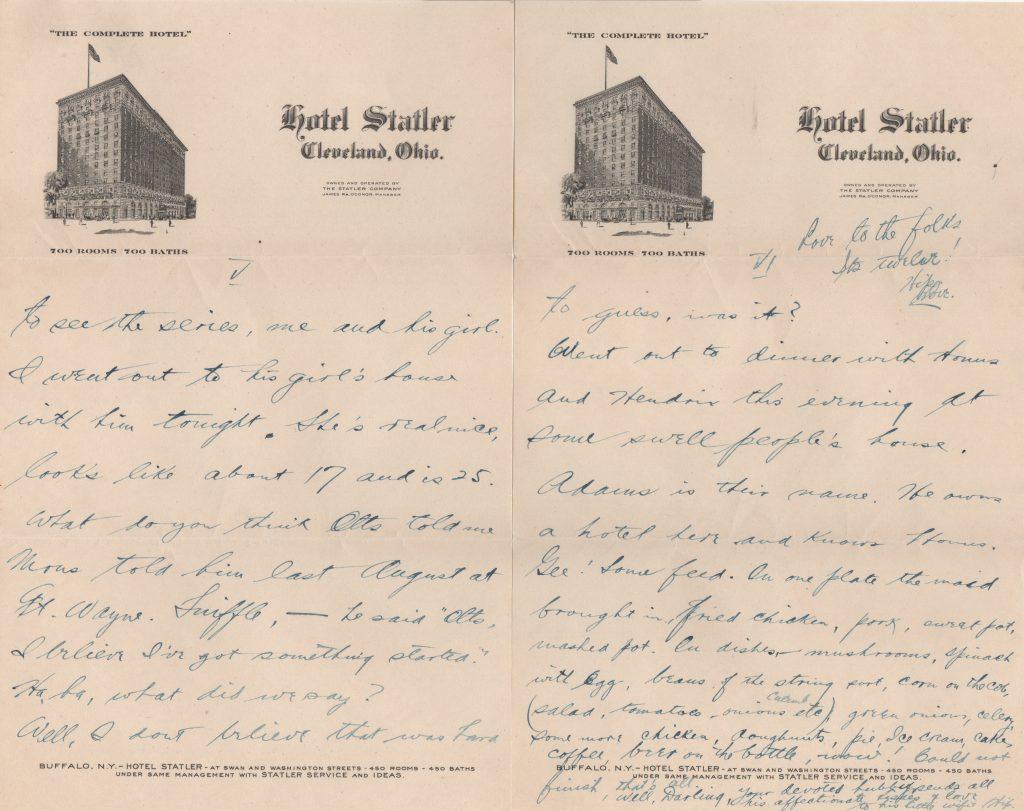 "THE COMPLETE HOTEL"
Hotel Statler
Cleveland, Ohio.
OWNED AND OPERATED BY
THE STATLER COMPANY
JAMES P.A. O'CONOR, MANAGER
700 ROOMS 700 BATHS
V
to see the series, me and his girl.
I went out to his girl's house
with him tonight. She's real nice,
looks like about 17 and is 25.
What do you think Otts told me
Mons told him last August at
Ft. Wayne. Sniffle, — he said "Otts,
I believe I've got something started."
Ha, ha, what did we say?
Well, I dont believe that was hard
BUFFALO, N.Y. - HOTEL STATLER - AT SWAN AND WASHINGTON STREETS - 450 ROOMS - 450 BATHS
UNDER SAME MANAGEMENT WITH STATLER SERVICE AND IDEAS.
"THE COMPLETE HOTEL"
Hotel Statler
Cleveland, Ohio.
OWNED AND OPERATED BY
THE STATLER COMPANY
JAMES P.A. O'CONOR, MANAGER
700 ROOMS 700 BATHS
Love to the folks
Its twelve!
VI
to guess, was it?
Went out to dinner with Honus
and Hendrix this evening at
some swell people's house.
Adams is their name. He owns
a hotel here and knows Honus.
Gee! Some feed. On one plate the maid
brought in, fried chicken, pork, sweet pot,
mashed pot. On dishes - mushrooms, spinach
with egg, beans of the string sort, corn on the cob,
(salad, tomatoes, onions etc), green onions, celery,
some more chicken, doughnuts, pie, Ice cream, cakes,
coffee, beer on the bottle, wow! Could not
BUFFALO, N.Y. - HOTEL STATLER - AT SWAN AND WASHINGTON STREETS - 450 ROOMS - 450 BATHS
UNDER SAME MANAGEMENT WITH STATLER SERVICE AND IDEAS.
finish, that's all.
Well, Darling, your devoted hubby sends all
his affectionate wishes & love
to his